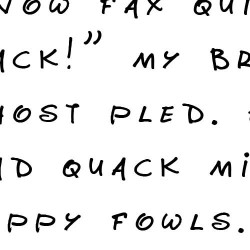 NOW FAX QUI
ACK!” MY BR
HOST PLED.
ND QUACK MI
PPY FOWLS.